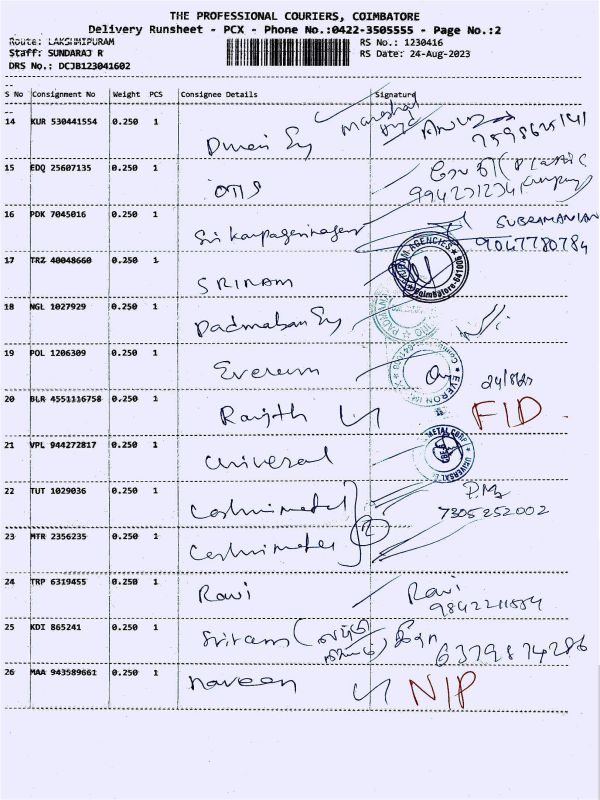 THE PROFESSIONAL COURIERS, COIMBATORE
Delivery Runsheet - PCX - Phone No.:0422-3505555 - Page No.:2
Route: LAKSHMIPURAM
RS No.: 1230416
Staff: SUNDARAJ R
RS Date: 24-Aug-2023
DRS No.: DCJB123041602
S No Consignment No Weight PCS Consignee Details Signature
14 KUR 530441554 0.250 1
7598625141
15 EDQ 25607135 0.250 1 OTIS
Plastic
9942312341 Company
16 PDK 7045016 0.250 1 Sri Karpaga SUBRAMANIAN
9047780784
AGENCIES
Coimbatore-641009
17 TRZ 40048660 0.250 1 SRIRAM
18 NGL 1027929 0.250 1 Padmaban
19 POL 1206309 0.250 1 Everum
EVERON
24/8/23
20 BLR 4551116758 0.250 1 Ranjith FID.
21 VPL 944272817 0.250 1 Universal
METAL CORP
UNIVERSAL
22 TUT 1029036 0.250 1
7305252002
2
23 MTR 2356235 0.250 1
24 TRP 6319455 0.250 1 Ravi Ravi
25 KDI 865241 0.250 1 Sriram
6379874286
26 MAA 943589661 0.250 1 naveen N/P